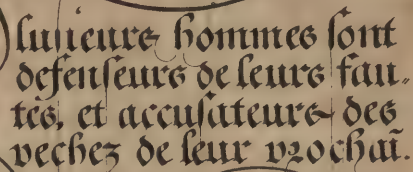 lusieurs hommes sont
defenseurs de leurs fau-
tes, et accusateurs des
pechez de leur prochaī.